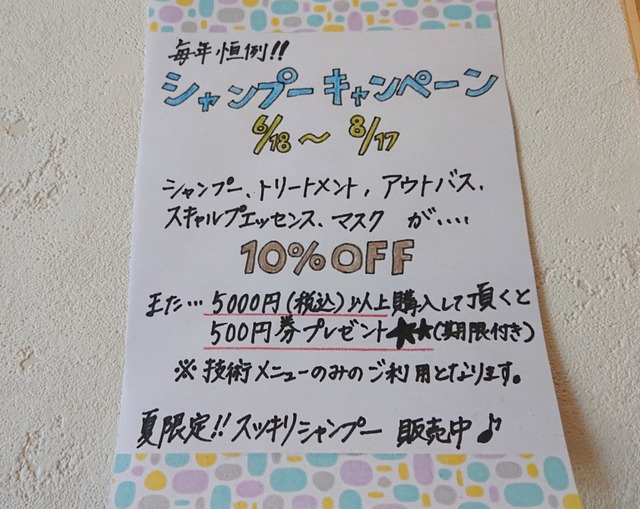 毎年恒例!!
シャンプーキャンペーン
6/18～8/17
シャンプー、トリートメント, アウトバス、
スキャルプエッセンス、マスク が....
10%OFF
また… 5000円(税込)以上購入して頂くと
500円券プレゼント★★(期限付き)
※技術メニューのみのご利用となります。
夏限定!!スッキリシャンプー 販売中♪